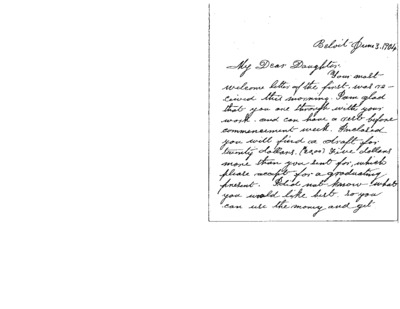 Beloit June 3. 1904
My Dear Daughter.
Your most
welcome letter of the first was re-
ceived this morning. I am glad
that you are through with your
work. and can have a rest before
commencement week. Enclosed
you will find a draft for
twenty dollars. Five dollars
more than you sent for which
please accept for a graduating
present. I did not know what
you would like best so you
can use the money and get